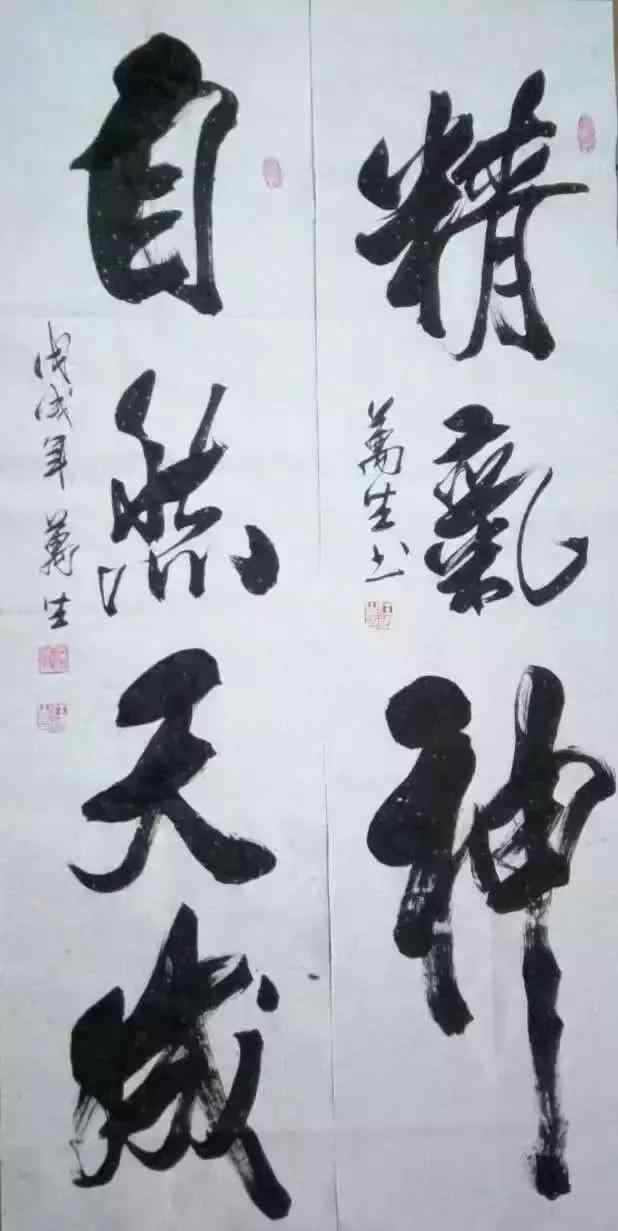 精氣神
萬生书
自然天成
戊戌年 萬生